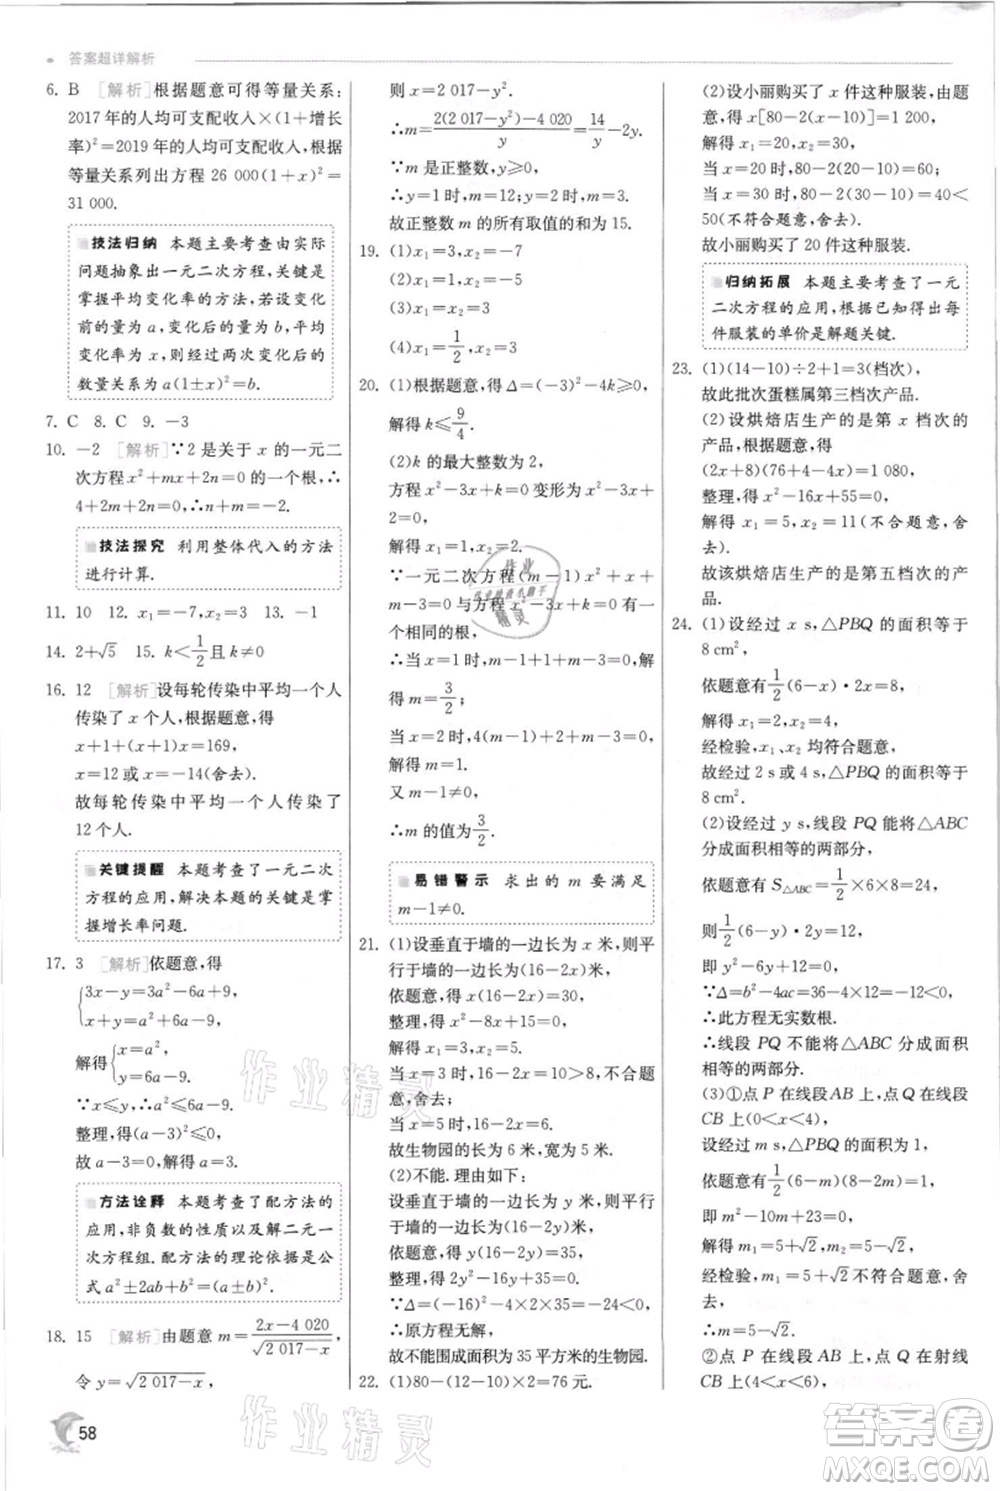 答案超详解析
6. B [解析]根据题意可得等量关系:
2017年的人均可支配收入×(1+增长
率)²=2019年的人均可支配收入,根据
等量关系列出方程 26 000(1+x)²=
31 000.
技法归纳 本题主要考查由实际
问题抽象出一元二次方程,关键是
掌握平均变化率的方法,若设变化
前的量为a,变化后的量为b,平均
变化率为x,则经过两次变化后的
数量关系为a(1±x)²=b.
7. C 8. C 9. -3
10. -2 [解析]∵2是关于x的一元二
次方程x²+mx+2n=0的一个根,∴
4+2m+2n=0,∴n+m=-2.
技法探究 利用整体代入的方法
进行计算.
11. 10 12. x₁=-7,x₂=3 13. -1
14. 2+√5 15. k<1/2且k≠0
16. 12 [解析]设每轮传染中平均一个人
传染了x个人,根据题意,得
x+1+(x+1)x=169,
x=12或x=-14(舍去).
故每轮传染中平均一个人传染了
12个人.
关键提醒 本题考查了一元二次
方程的应用,解决本题的关键是掌
握增长率问题.
17. 3 [解析]依题意,得
{3x-y=3a²-6a+9,
x+y=a²+6a-9,
解得{x=a²,
y=6a-9.
∵x≤y,∴a²≤6a-9,
整理,得(a-3)²≤0,
故a-3=0,解得a=3.
方法诠释 本题考查了配方法的
应用,非负数的性质以及解二元一
次方程组.配方法的理论依据是公
式a²±2ab+b²=(a±b)²
18. 15 [解析]由题意m=(2x-4 020)/√(2 017-x),
令y=√(2 017-x),
58
则x=2 017-y².
∴m=(2(2 017-y²)-4 020)/y=14/y-2y.
∵m是正整数,y≥0,
∴y=1时,m=12;y=2时,m=3.
故正整数m的所有取值的和为15.
19. (1)x₁=3,x₂=-7
(2)x₁=4,x₂=2
(3)x₁=x₂=3
(4)x₁=1/2,x₂=3
20. (1)根据题意,得Δ=(-3)²-4k≥0,
解得k≤9/4.
(2)k的最大整数为2,
方程x²-3x+k=0变形为x²-3x+
2=0,
解得x₁=1,x₂=2.
∵一元二次方程(m-1)x²+x+
m-3=0与方程x²-3x+k=0有一
个相同的根,
∴当x=1时,m-1+1+m-3=0,解
得m=3/2;
当x=2时,4(m-1)+2+m-3=0,
解得m=1.
又m-1≠0,
∴m的值为3/2.
易错警示 求出的m要满足
m-1≠0.
21. (1)设垂直于墙的一边长为x米,则平
行于墙的一边长为(16-2x)米,
依题意,得x(16-2x)=30,
整理,得x²-8x+15=0,
解得x₁=3,x₂=5.
当x=3时,16-2x=10>8,不合题
意,舍去;
当x=5时,16-2x=6.
故生物园的长为6米,宽为5米.
(2)不能.理由如下:
设垂直于墙的一边长为y米,则平行
于墙的一边长为(16-2y)米,
依题意,得y(16-2y)=35,
整理,得2y²-16y+35=0.
∵Δ=(-16)²-4×2×35=-24<0,
∴原方程无解.
故不能围成面积为35平方米的生物园.
22. (1)80-(12-10)×2=76元.
(2)设小丽购买了x件这种服装,由题
意,得x[80-2(x-10)]=1 200,
解得x₁=20,x₂=30.
当x=20时,80-2(20-10)=60;
当x=30时,80-2(30-10)=40<
50(不符合题意,舍去).
故小丽购买了20件这种服装.
归纳拓展 本题主要考查了一元
二次方程的应用,根据已知得出每
件服装的单价是解题关键.
23. (1)(14-10)÷2+1=3(档次),
故此批次蛋糕属第三档次产品.
(2)设烘焙店生产的是第x档次的
产品,根据题意,得
(2x+8)(76+4-4x)=1 080,
整理,得x²-16x+55=0,
解得x₁=5,x₂=11(不合题意,舍
去).
故该烘焙店生产的是第五档次的产
品.
24. (1)设经过x s,△PBQ的面积等于
8 cm²,
依题意有1/2(6-x)·2x=8,
解得x₁=2,x₂=4,
经检验,x₁、x₂均符合题意,
故经过2 s或4 s,△PBQ的面积等于
8 cm².
(2)设经过y s,线段PQ能将△ABC
分成面积相等的两部分,
依题意有S△ABC=1/2×6×8=24,
则1/2(6-y)·2y=12,
即y²-6y+12=0.
∵Δ=b²-4ac=36-48=-12<0,
∴此方程无实数根.
∴线段PQ不能将△ABC分成面积
相等的两部分.
(3)①点P在线段AB上,点Q在线段
CB上(0<x<4),
设经过m s,△PBQ的面积为1,
依题意有1/2(6-m)(8-2m)=1,
即m²-10m+23=0,
解得m₁=5+√2,m₂=5-√2.
经检验,m₁=5+√2不符合题意,舍
去,
∴m=5-√2.
②点P在线段AB上,点Q在射线
CB上(4<x<6),
作业精灵
作业精灵
作业精灵
答案圈
MXQE.COM